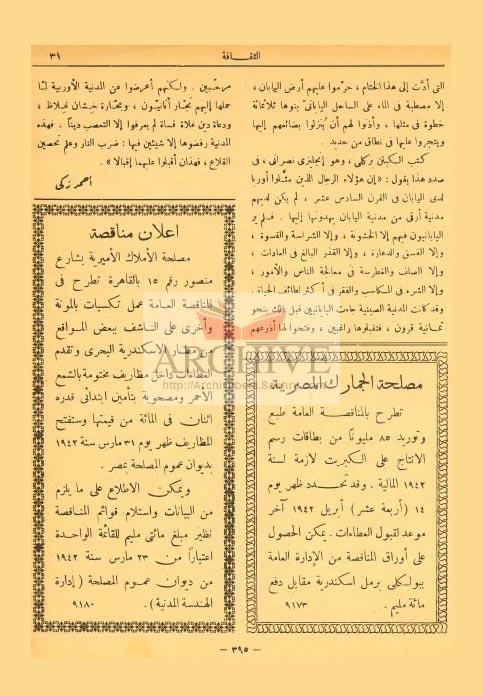 ٣١
الثقافة
التى أدّت إلى هذا الختام ، حرّموا عليهم أرض اليابان ،
إلا مصطبة فى الماء على الساحل اليابانىّ بنوها ثلاثمائة
خطوة فى مثلها ، وأذنوا لهم أن يُنزلوا بضائعهم إليها
ويتجروا عليها فى نطاق من حديد .
كتب الكبتن بركلى ، وهو إنجليزى نصرانى ، فى
صدد هذا يقول : « إن هؤلاء الرجال الذين مثّلوا أوربا
لدى اليابان فى القرن السادس عشر ، لم يكن لديهم
مدنية أرقى من مدنية اليابان يهدونها إليها . فلم ير
اليابانيون فيهم إلا الخشونة ، وإلا الشراسة والقسوة ،
وإلا الفسق والدعارة ، وإلا القذر البالغ فى العادات ،
وإلا الصلف والغطرسة فى معالجة الناس والأمور ،
وإلا الشره فى المكاسب والفقر فى أكثر لطائف الحياة .
وقد كانت المدنية الصينية جاءت اليابانيين قبل ذلك بنحو
ثمانية قرون ، فتقبلوها راغبين ، وفتحوا لها أذرعهم
مصلحة الجمارك المصرية
تطرح بالمناقصة العامة طبع
وتوريد ٨٥ مليونًا من بطاقات رسم
الانتاج على الكبريت لازمة لسنة
١٩٤٢ المالية . وقد تحدد ظهر يوم
١٤ ( أربعة عشر ) أبريل ١٩٤٢ آخر
موعد لقبول العطاءات . يمكن الحصول
على أوراق المناقصة من الإدارة العامة
ببولكلى برمل اسكندرية مقابل دفع
مائة مليم . ٩١٧٣
مرحّبين . ولكنهم أعرضوا عن المدنية الأوربية لمّا
حملها إليهم تجّار أنانيّون ، وبحّارة خِشان غِلاظ ،
ودعاة دين غلاة قساة لم يعرفوا إلا التعصب ديناً . فهذه
المدنية رفضوها إلا شيئين فيها : ضرب النار وعلم تحصين
القلاع ، فهذان أقبلوا عليهما إقبالا » .
أحمد زكى
اعلان مناقصة
مصلحة الأملاك الأميرية بشارع
منصور رقم ١٥ بالقاهرة تطرح فى
المناقصة العامة عمل تكسيات بالمونة
وأخرى على الناشف ببعض المواقع
من مطار الاسكندرية البحرى وتقدم
العطاءات داخل مظاريف مختومة بالشمع
الأحمر ومصحوبة بتأمين ابتدائى قدره
اثنان فى المائة من قيمتها وستفتح
المظاريف ظهر يوم ٣١ مارس سنة ١٩٤٢
بديوان عموم المصلحة بمصر .
ويمكن الاطلاع على ما يلزم
من البيانات واستلام قوائم المناقصة
نظير مبلغ مائتى مليم للقائمة الواحدة
اعتباراً من ٢٣ مارس سنة ١٩٤٢
من ديوان عموم المصلحة ( إدارة
الهندسة المدنية ) . ٩١٨٠
ARCHIVE
— ٣٩٥ —